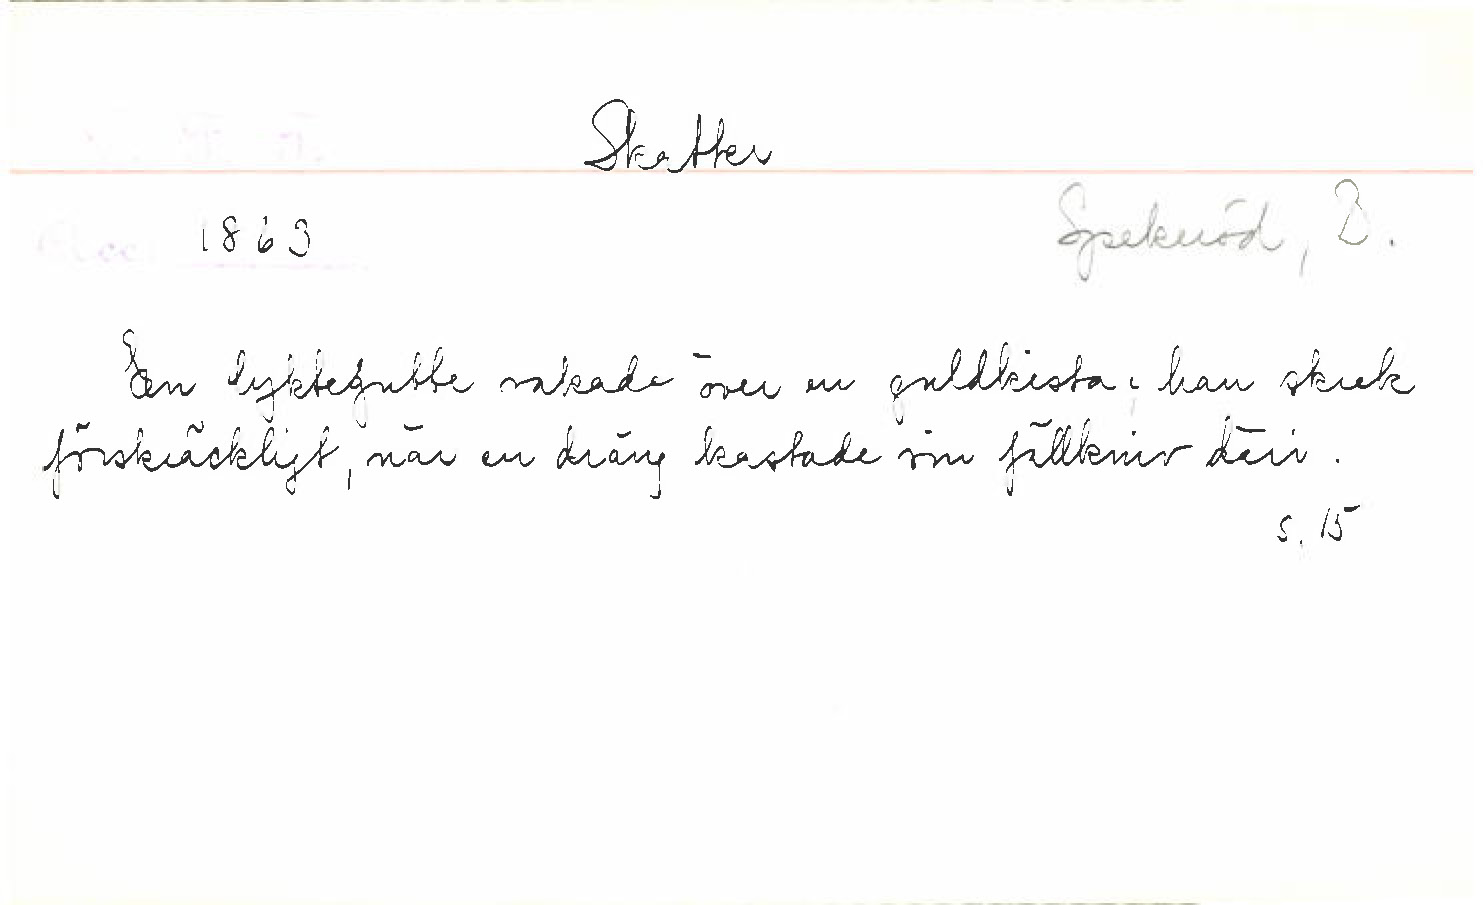 Skatter
1863
Spekeröd, B.
En lyktegubbe vakade över en guldkista; han skrek
förskräckligt, när en dräng kastade sin fällkniv däri.
s. 15